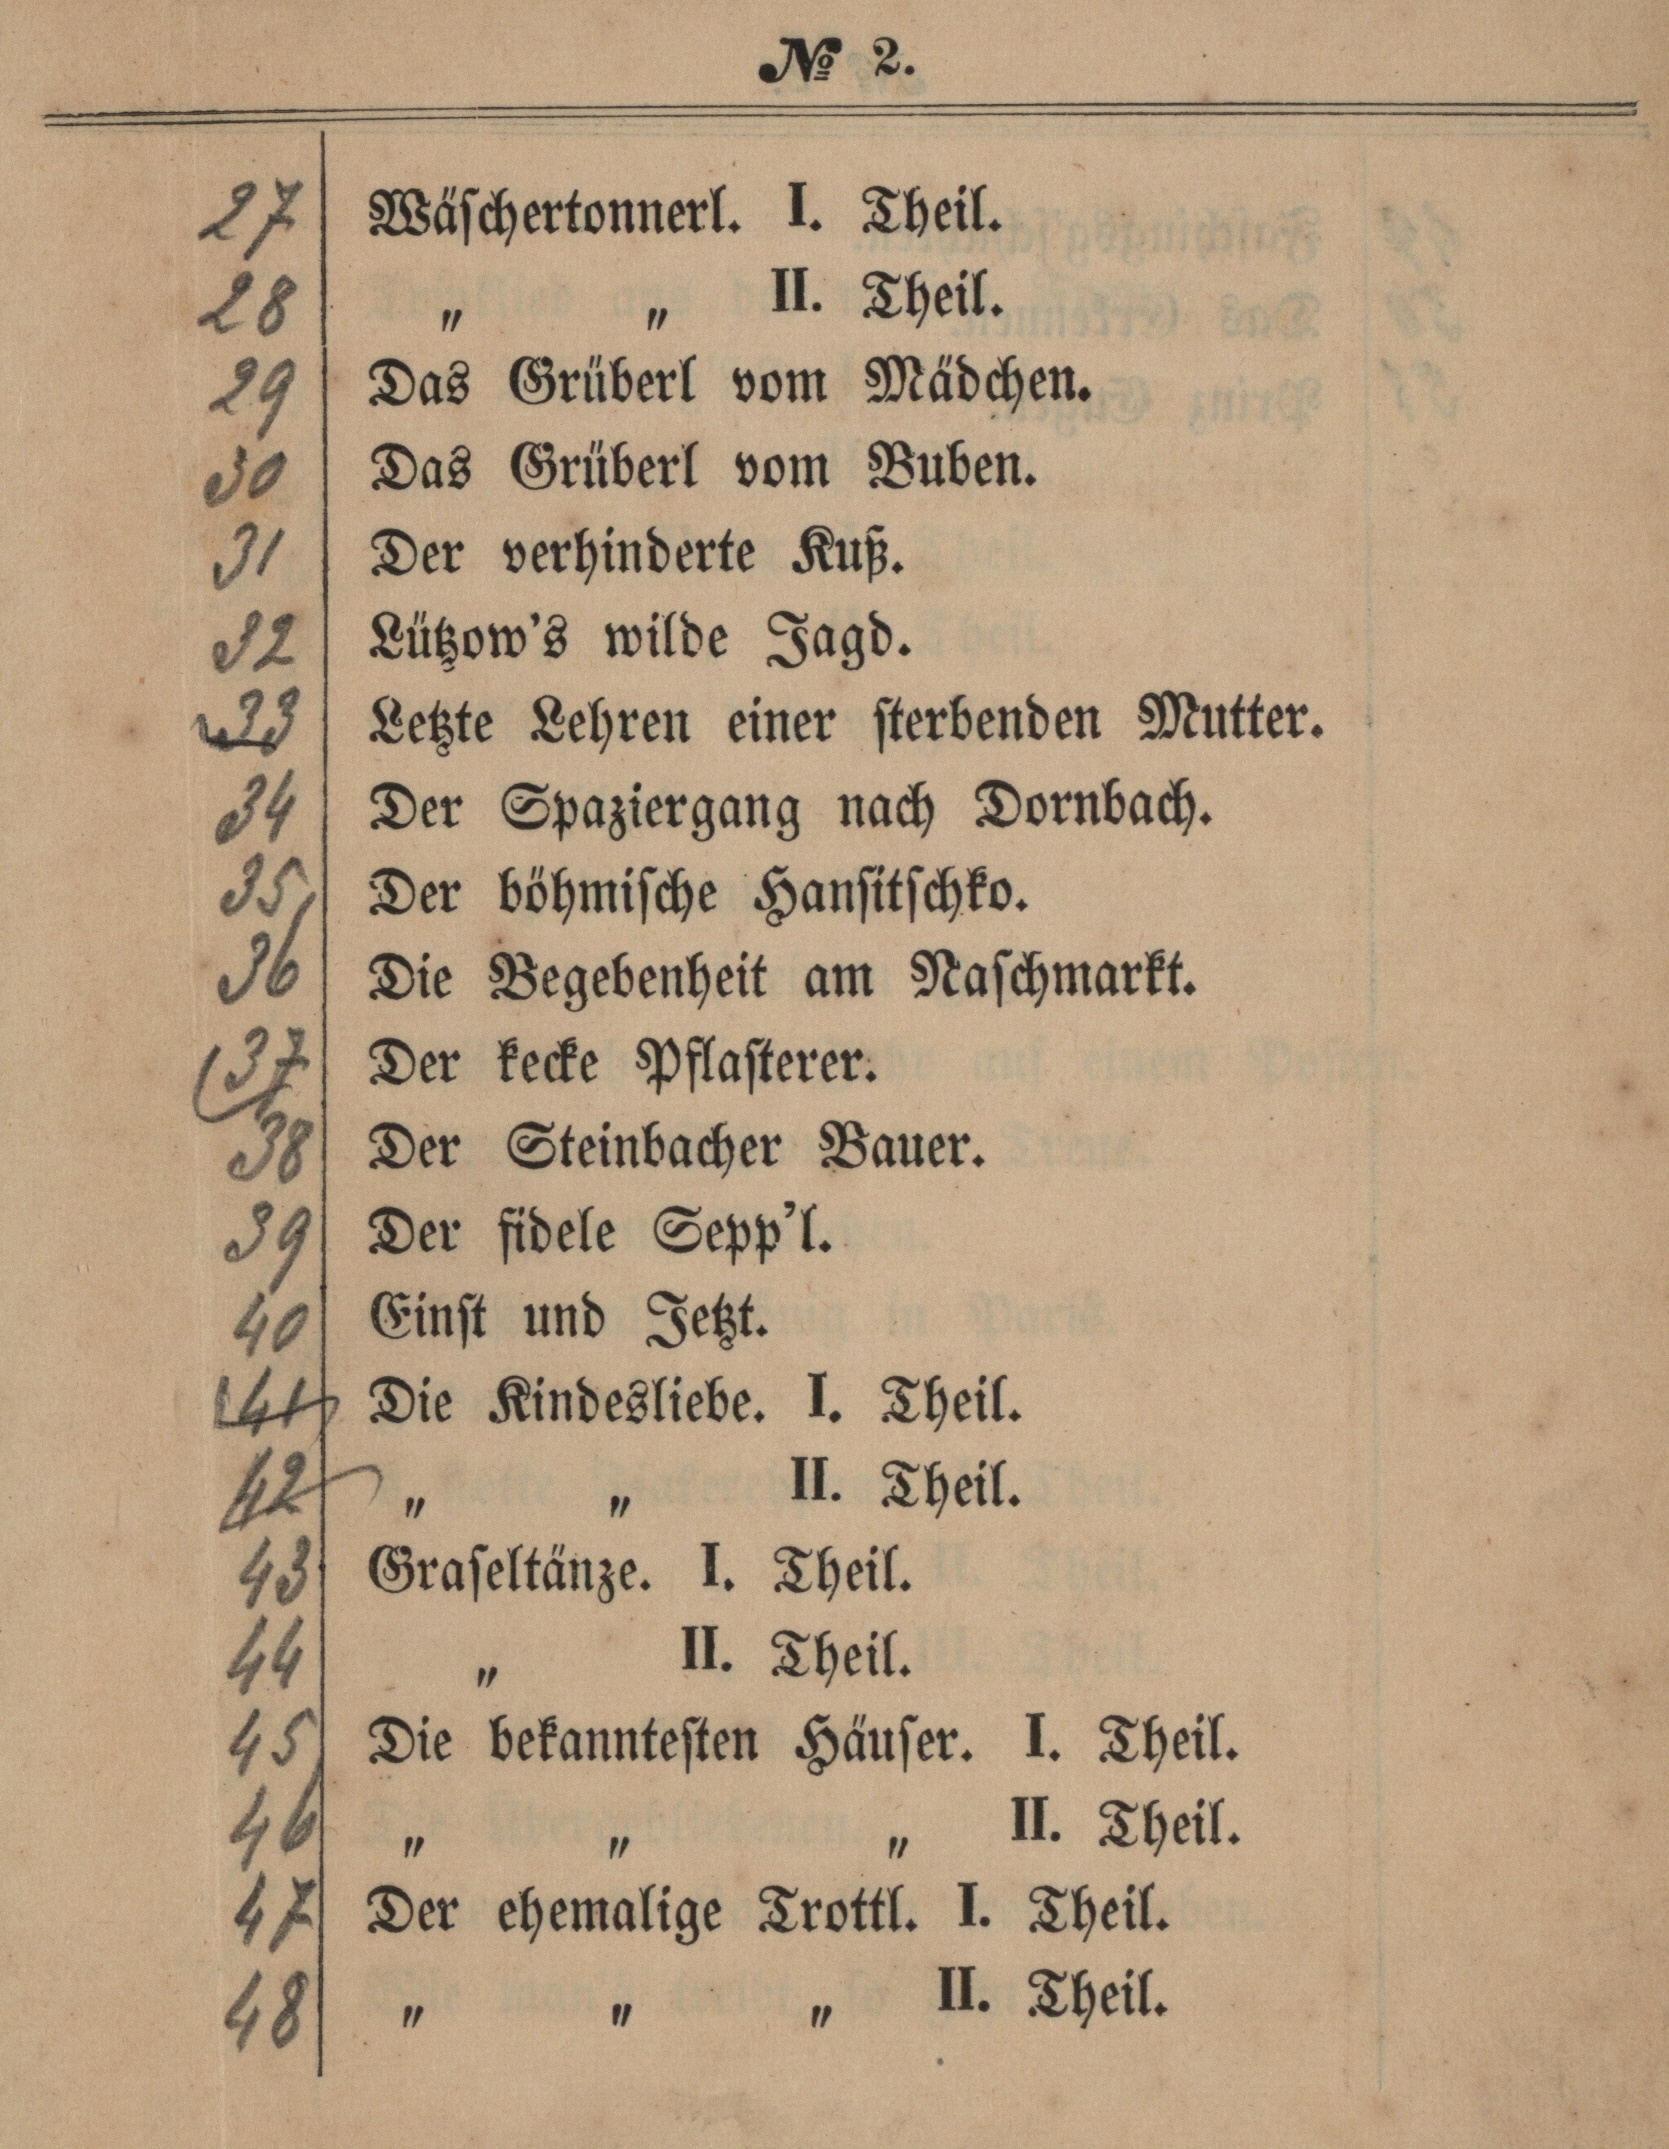 № 2.
27 Wäschertonnerl. I. Theil.
28 „ „ II. Theil.
29 Das Grüberl vom Mädchen.
30 Das Grüberl vom Buben.
31 Der verhinderte Kuß.
32 Lützow's wilde Jagd.
33 Letzte Lehren einer sterbenden Mutter.
34 Der Spaziergang nach Dornbach.
35 Der böhmische Hansitschko.
36 Die Begebenheit am Naschmarkt.
37 Der kecke Pflasterer.
38 Der Steinbacher Bauer.
39 Der fidele Sepp'l.
40 Einst und Jetzt.
41 Die Kindesliebe. I. Theil.
42 „ „ II. Theil.
43 Graseltänze. I. Theil.
44 „ II. Theil.
45 Die bekanntesten Häuser. I. Theil.
46 „ „ „ II. Theil.
47 Der ehemalige Trottl. I. Theil.
48 „ „ „ II. Theil.